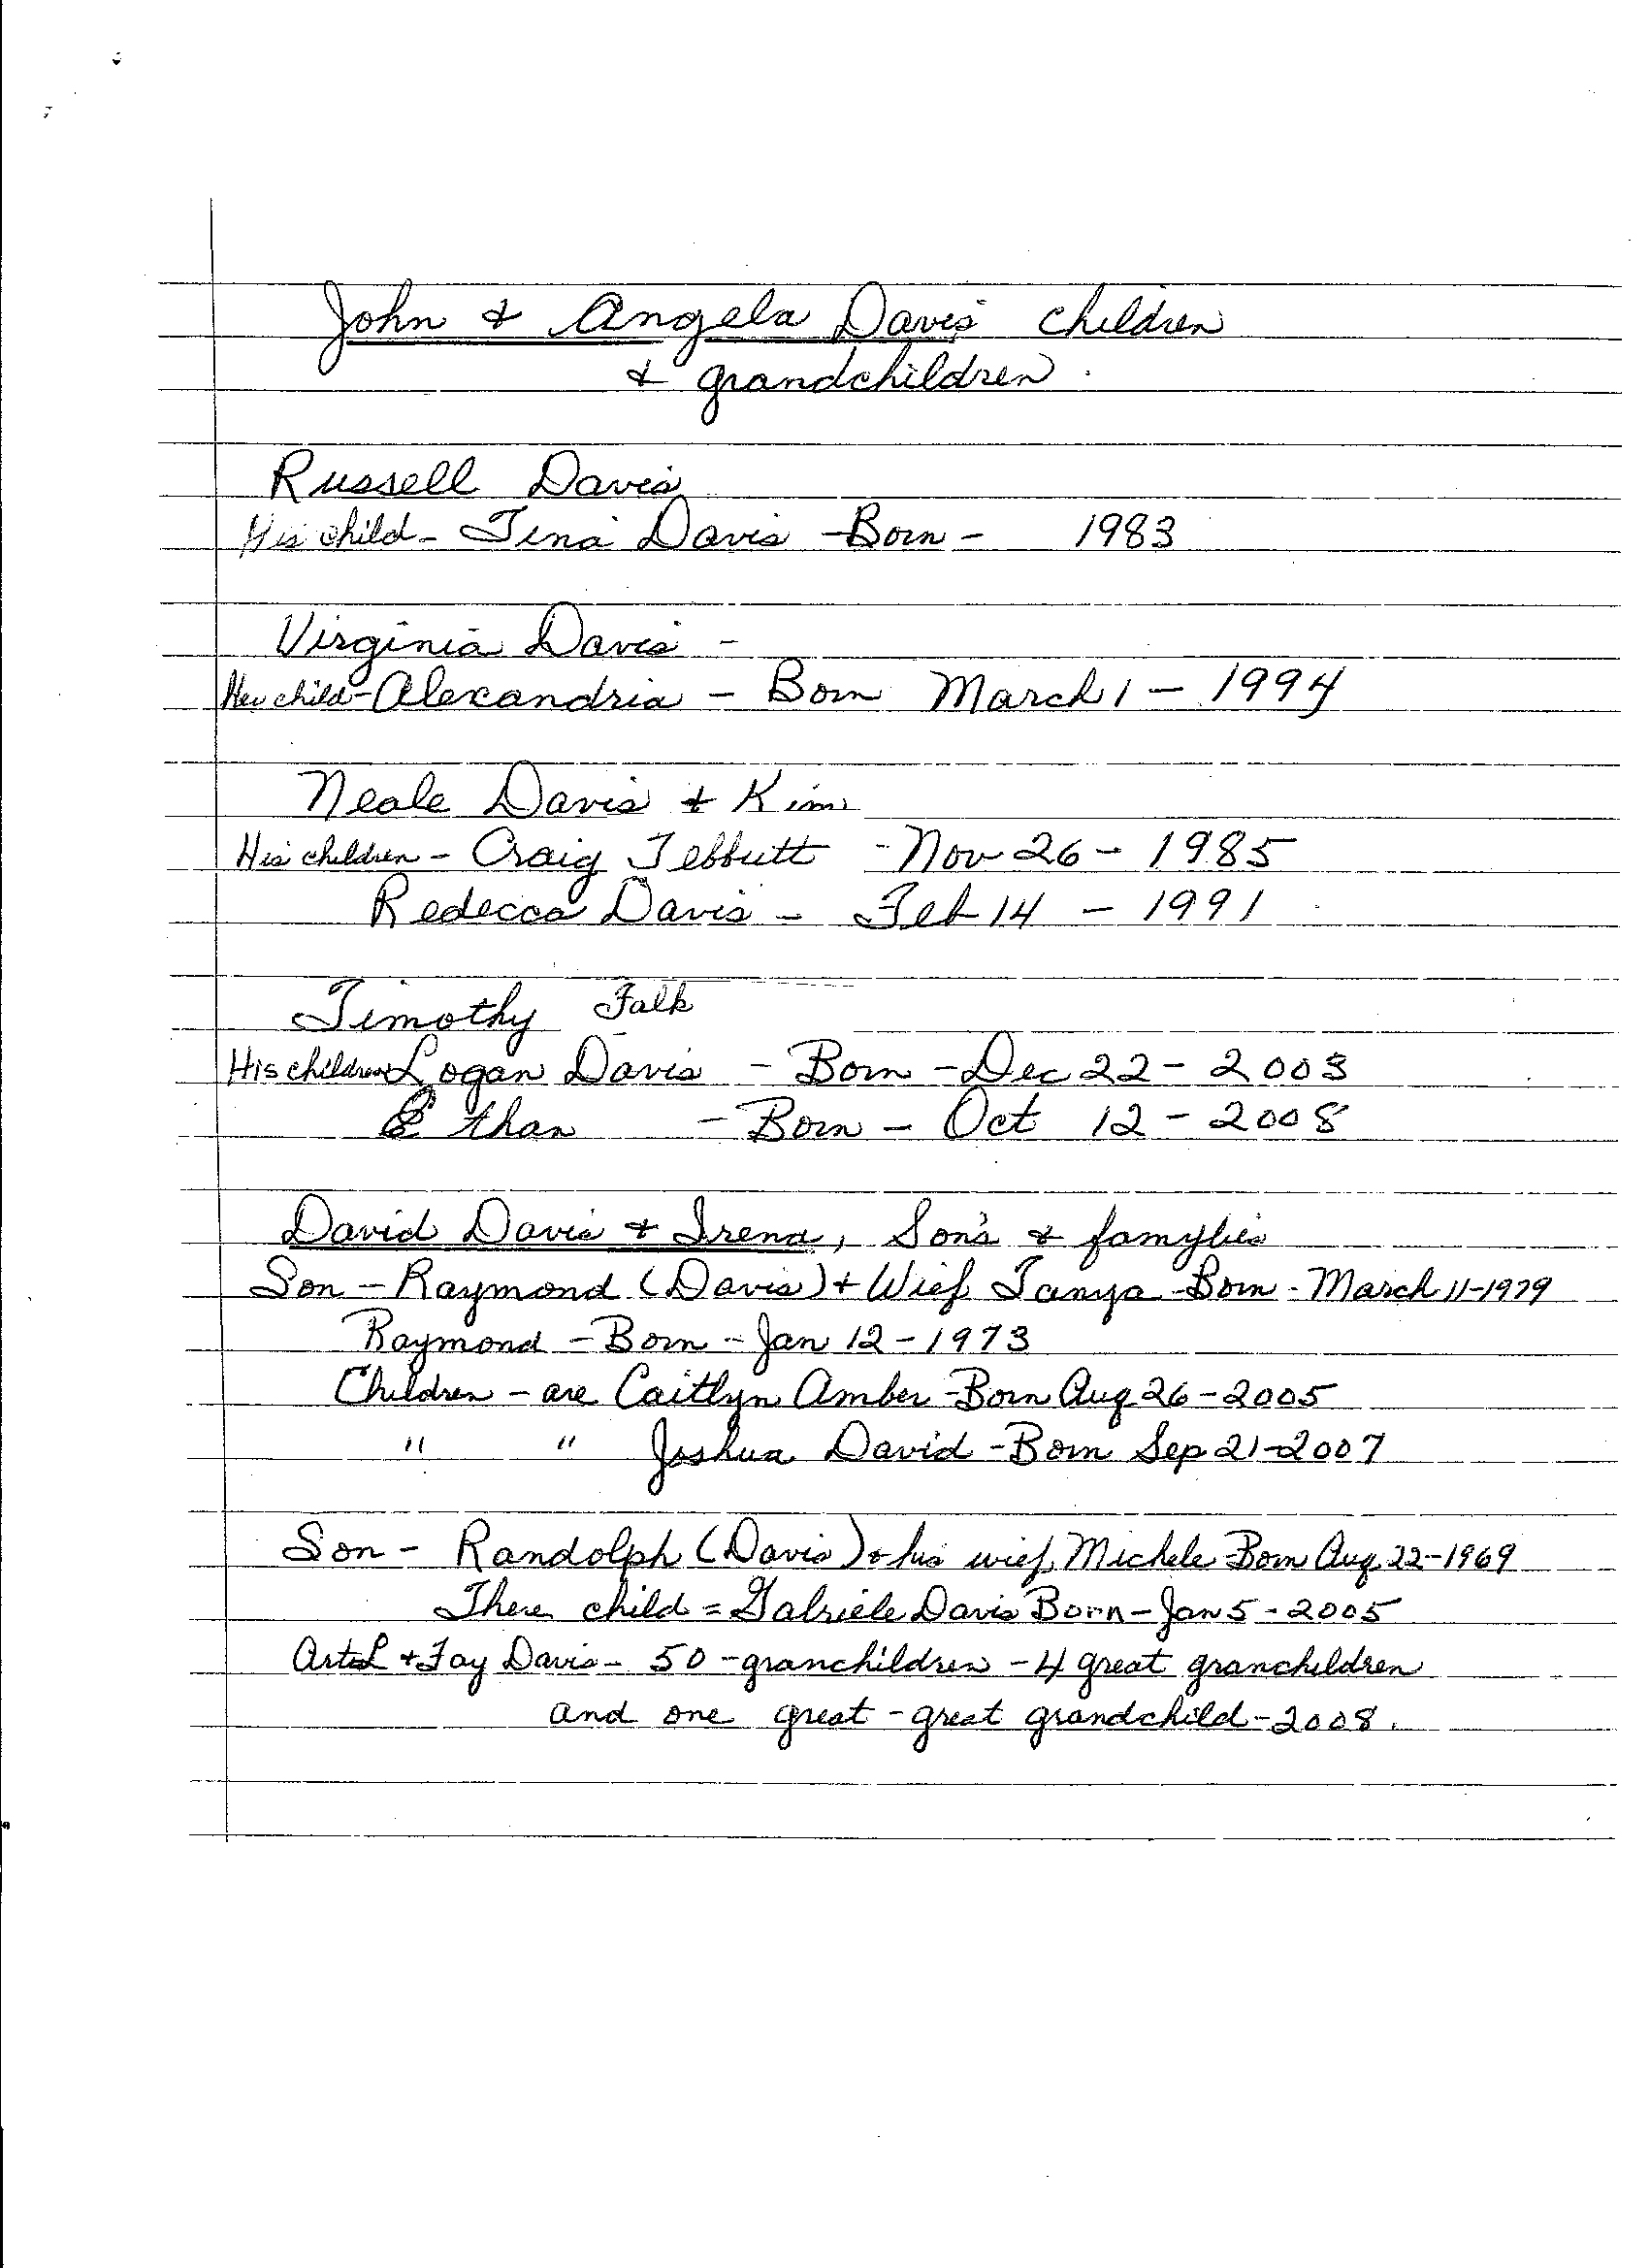 John & Angela Davis children
& grandchildren.
Russell Davis
His child - Tina Davis - Born - 1983
Virginia Davis -
Her child - Alexandria - Born March 1 - 1994
Neale Davis & Kim
His children - Craig Tebbutt - Nov 26 - 1985
Redecca Davis - Feb 14 - 1991
Timothy Falk
His children Logan Davis - Born - Dec 22 - 2003
Ethan - Born - Oct 12 - 2008
David Davis & Irena, Son's & famylies
Son - Raymond (Davis) + Wief Tanya - Born - March 11 - 1979
Raymond - Born - Jan 12 - 1973
Children - are Caitlyn Amber - Born Aug 26 - 2005
" " Joshua David - Born Sep 21 - 2007
Son - Randolph (Davis) & his wief Michele Born Aug 22 - 1969
There child = Gabriele Davis Born - Jan 5 - 2005
& Fay Davis - 50 - granchildren - 4 great granchildren
and one great - great grandchild - 2008.